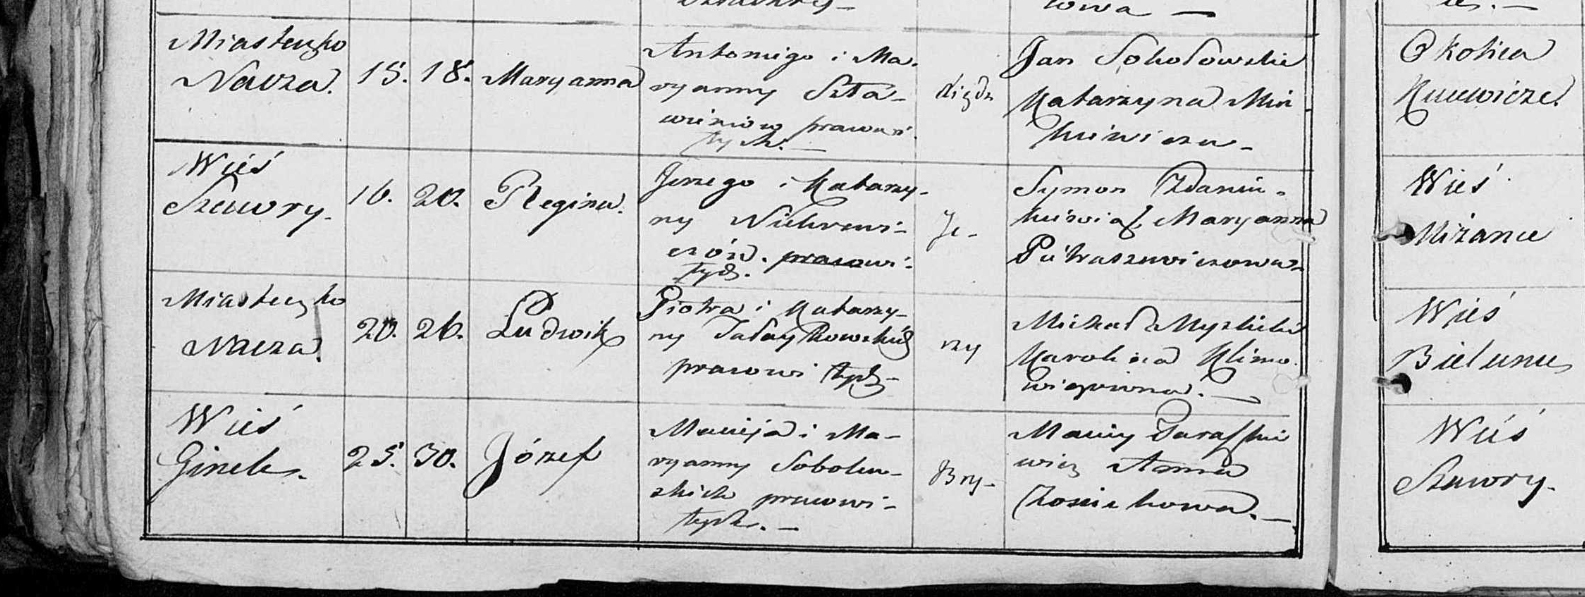 wowa —
Miasteczko
Nacza.
15. 18. Maryanna
Antoniego i Ma-
ryanny Szta-
wieniow prawowi-
tych. —
Jan Sobolowski
Katarzyna Min
kiewicza —
Okolica
Kucewicze.
Wieś
Szawry.
16. 20. Regina.
Jerzego i Katarzy-
ny
czów. prawowi-
tych.
Je-
Symon Zdanin-
kiewicz, Maryanna
Pietraszewiczowa
Wieś
Miżance
Miasteczko
Nacza.
20. 26. Ludwik
Piotra i Katarzy-
ny
prawowi tych —
rzy
Michał Myslicki
Karolina Klimo-
wiczowna. —
Wieś
Bielunce
Wieś
Ginele.
25. 30. Józef
Macieja i Ma-
ryanny Sobolew-
skich prawowi-
tych. —
Bry-
Maciey Paraski
wicz Anna
Wieś
Szawry.